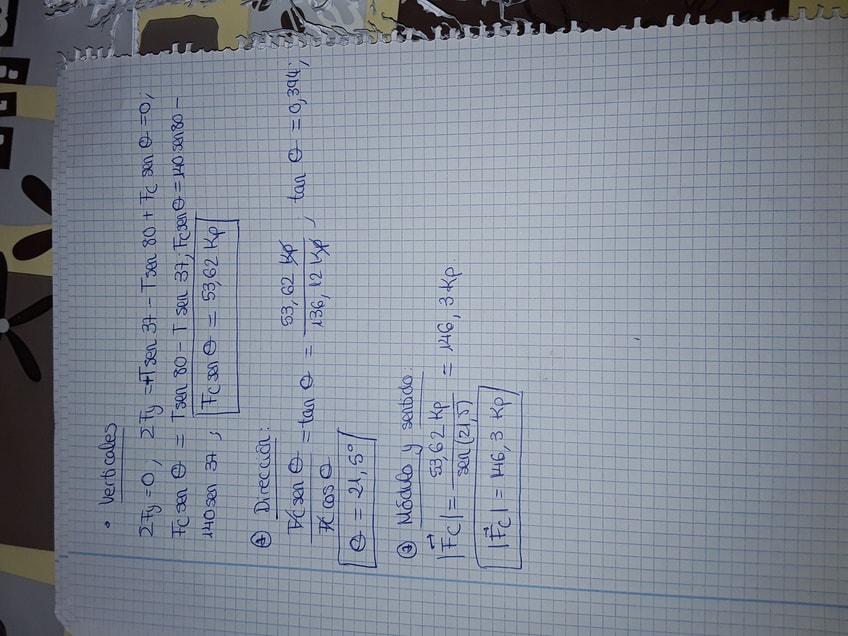 • Verticales
ΣFy = 0, ΣFy = +T sen 37 - T sen 80 + Fc sen θ = 0,
Fc sen θ = T sen 80 - T sen 37; Fc sen θ = 140 sen 80 -
140 sen 37; Fc sen θ = 53,62 Kp
Dirección:
Fc sen θ / Fc cos θ = tan θ = 53,62 Kp / 136,12 Kp, tan θ = 0,394;
θ = 21,5º
Módulo y sentido
|Fc| = 53,62 Kp / sen (21,5) = 146,3 Kp.
|Fc| = 146,3 Kp